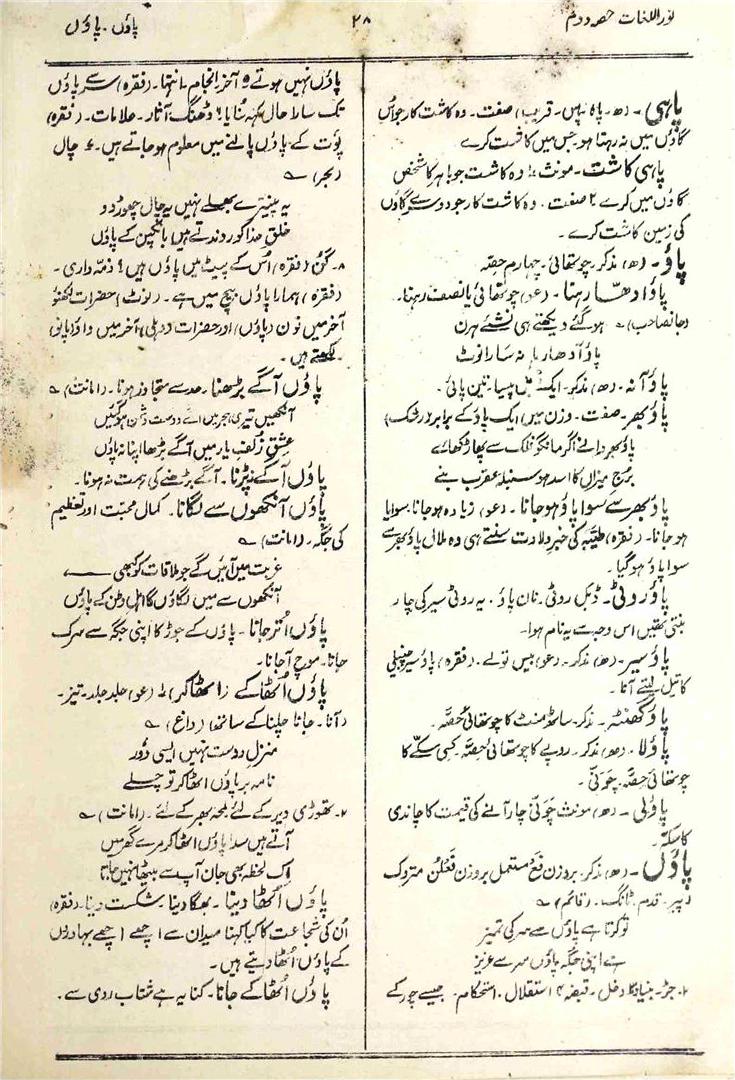 نور اللغات حصہ دوم
۲۸
پاؤں ۔ پاؤں
پاہی ۔ (ھ۔ پاہ پاس۔ قریب) صفت۔ وہ کاشت کار جو اُس
گاؤں میں نہ رہتا ہو جس میں کاشت کرے
پاہی کاشت ۔ مونث ۱۔ وہ کاشت جو باہر کا شخص
گاؤں میں کرے ۲ صفت۔ وہ کاشت کار جو دوسرے گاؤں
کی زمین کاشت کرے۔
پاؤ ۔ (ھ) مذکر۔ چوتھائی۔ چہارم حصّہ
پاؤ آدھا رہنا ۔ (عو) چوتھائی یا نصف رہنا۔
(جانصاحب) ؎ ہوگئے دیکھتے ہی نشّے ہرن
پاؤ آدھا رہا نہ سارا نوٹ
پاؤ آنہ ۔ (ھ) مذکر۔ ایک پیسا۔ تین پائی۔
پاؤ بھر۔ صفت۔ وزن میں ایک پاؤ کے برابر (رشک)
پاؤ بھر دانے اگر مانگو فلک سے پھاڑ کھائے
برج میزاں کا اسد ہو سنبلہ عقرب بنے
پاؤ بھر سے سوا پاؤ ہو جانا ۔ (عو) زیادہ ہو جانا۔ سوایا
ہو جانا۔ (فقرہ) طیّبہ کی خبر ولادت سنتے ہی وہ ملال پاؤ بھر سے
سوا پاؤ ہو گیا۔
پاؤ روٹی ۔ ڈبل روٹی۔ نان پاؤ۔ یہ روٹی سیر کی چار
بنتی تھیں اس وجہ سے یہ نام ہوا۔
پاؤ سیر ۔ (ھ) مذکر۔ (عو) بیس تولے۔ (فقرہ) پاؤ سیر چنبیلی
کا تیل لیتے آنا۔
پاؤ گھنٹہ ۔ مذکر۔ ساٹھ منٹ کا چوتھائی حصّہ۔
پاؤلا ۔ (ھ) مذکر۔ روپے کا چوتھائی حصّہ۔ کسی سکّے کا
چوتھائی حصّہ۔ چونّی۔
پاؤلی ۔ (ھ) مونث چونّی چار آنے کی قیمت کا چاندی
کا سکّہ۔
پاؤں ۔ (ھ) مذکر۔ بروزن فع مستعمل بروزن فعلن متروک
(پیر۔ قدم۔ ٹانگ۔ (قائم) ؎
تو کرتا ہے پاؤں سے سر کی تمیز
ہے اپنی جگہ پاؤں سر سے عزیز
۲۔ جڑ۔ بنیاد ۳ دخل۔ قبضہ ۴ استقلال۔ استحکام۔ جیسے چور کے
پاؤں نہیں ہوتے ۵ آخر۔ انجام۔ انتہا۔ (فقرہ) سر سے پاؤں
تک سارا حال کہہ سُنایا ۶ ڈھنگ۔ آثار۔ علامات۔ (فقرہ)
پوت کے پاؤں پالنے میں معلوم ہو جاتے ہیں۔ ۷ چال
(بحر) ؎
یہ پینترے بھلے نہیں یہ چال چھوڑ دو
خلق خدا کو روندتے ہیں بانکپن کے پاؤں
۸۔ گُن (فقرہ) اُس کے پیٹ میں پاؤں ہیں ۹ ذمّہ داری۔
(فقرہ) ہمارا پاؤں بیچ میں ہے۔ (نوٹ) حضرات لکھنؤ
آخر میں نون (پاؤں) اور حضرات دہلی آخر میں واؤ (پانو)
لکھتے ہیں۔
پاؤں آگے بڑھنا ۔ حد سے متجاوز ہونا۔ (امانت) ؎
آنکھیں تیری ہجر میں اے دوست دشمن ہوگئیں
عشق زلف یار میں آگے بڑھا اپنا نہ پاؤں
پاؤں آگے نہ پڑنا ۔ آگے بڑھنے کی ہمت نہ ہونا۔
پاؤں آنکھوں سے لگانا ۔ کمال محبت اور تعظیم
کی جگہ۔ (امانت) ؎
غربت میں آئیں گے جو ملاقات کو کبھی
آنکھوں سے میں لگاؤں گا اہل وطن کے پاؤں
پاؤں اُتر جانا ۔ پاؤں کے جوڑ کا اپنی جگہ سے سرک
جانا۔ موچ آ جانا۔
پاؤں اُٹھا کے (اٹھا کر) ۱۔ (عو) جلد جلد۔ تیز۔
(آنا۔ جانا چلنا کے ساتھ) (داغ) ؎
منزل دوست نہیں ایسی دور
نامہ بر پاؤں اٹھا کر تو چلے
۲۔ تھوڑی دیر کے لئے لمحہ بھر کے لئے۔ (امانت) ؎
آتے ہیں سدا پاؤں اٹھا کر مرے گھر میں
اک لحظہ بھی جان آپ سے بیٹھا نہیں جاتا
پاؤں اُٹھا دینا ۔ بھگا دینا۔ شکست دینا۔ (فقرہ)
اُن کی شجاعت کا کیا کہنا میدان سے اچھے اچھے بہادروں
کے پاؤں اُٹھا دیتے ہیں۔
پاؤں اُٹھا کے جانا ۔ کنایہ ہے شتاب روی سے۔